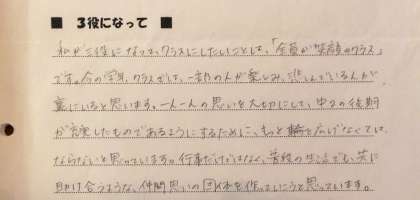 ■ 3役になって ■
私が三役になって、クラスにしたいことは、「全員が笑顔のクラス」
です。今の学年、クラスでは、一部の人が楽しみ、悲しんでいる人が
裏にいると思います。一人一人の思いを大切にして、中2の後期
が充実したものであるようにするために、もっと輪を広げなくては
ならないと思っています。行事だけではなく、普段の生活でも、共に
助け合うような、仲間思いの団体を作っていこうと思っています。